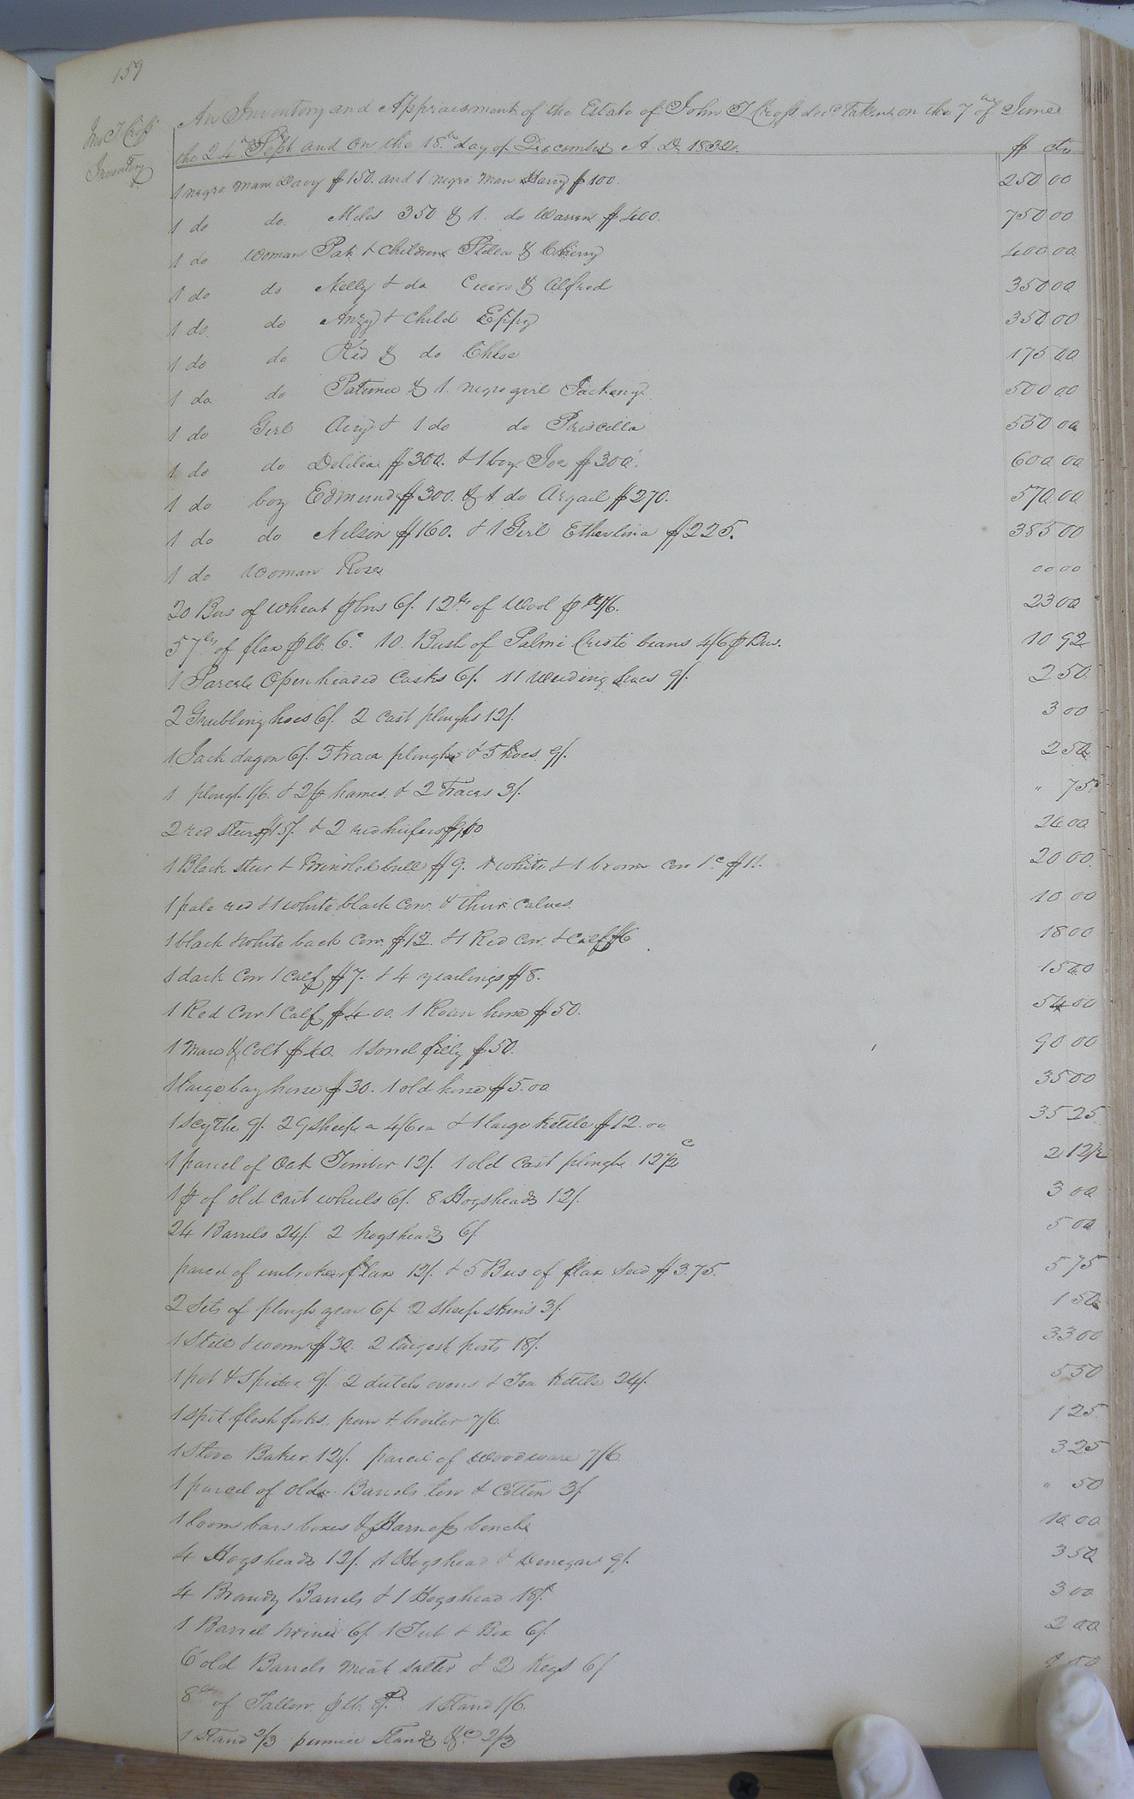 159
An Inventory and Appraisment of the Estate of John T Cross decd Taken on the 7th of June
Jno T Cross
Inventory
the 24th Sept and on the 18th day of December A D. 183
$ cts
1 negro man Davy $150. and 1 negro man Harry $100. 250 00
1 do do. Miles 350 & 1. do Warren $400. 750 00
1 do Woman Pat & children & Cherry 400 00
1 do do Nelly & do Cicero & Alfred 350 00
1 do do & child Eppy 350 00
1 do do & do Chloe 175 00
1 do do Patience & 1. negro girl 500 00
1 do Girl & 1 do do Priscilla 550 00
1 do do Delilia $300. & 1 boy Joe $300. 600 00
1 do boy Edmund $300. & 1 do $270. 570 00
1 do do Nelson $160. & 1 Girl Etherlina $225. 385 00
1 do Woman Rose 00 00
20 Bus of wheat pr bus 6/. 12 lbs of Wool 23 00
57 lbs of flax pr lb. 6c 10. Bush of Palmi Cristi beans 4/6 pr Bus. 10 92
1 Parcele Open headed Casks 6/. 11 Weeding hoes 9/. 2 50
2 Grubbing hoes 6/. 2 cast ploughs 12/. 3 00
1 Jack dagon 6/. 3 trace ploughs & 5 hoes 9/. 2 50
1 plough 1/6. & 2 pr hames. & 2 Traces 3/. " 75
2 red steers $15/. & 2 red heifers 24 00
1 Black steer & Brindled bull $9. 1 white & 1 brown cow $11. 20 00
1 pale red & 1 white black cow. & their calves. 10 00
1 black & white back cow. $12 & 1 Red cow. & calf $6 18 00
1 dark cow 1 calf $7. & 4 yearlings $8. 15 00
1 Red Cow 1 Calf $4 00. 1 Roan horse $50. 54 00
1 Mare & Colt $40. 1 Sorrel filly $50. 90 00
1 large bay horse $30. 1 old horse $5.00 35 00
1 Scythe 9/. 29 sheep a 4/6 ea & 1 large kettle $12.00 35 25
1 parcel of Oak Timber 12/. 1 old Cast plough 12 1/2 c 2 12 1/2
1 pr of old cart wheels 6/. 8 Hogsheads 12/. 3 00
24 Barrels 24/. 2 hogsheads 6/ 5 00
parcel of unbroken flax 12/. & 5 Bus of flax Seed $3.75. 5 75
2 Sets of plough gear 6/. 2 Sheep skins 3/. 1 50
1 Still & worm $30. 2 largest pots 18/. 33 00
1 pot & Spider 9/. 2 dutch ovens & Tea Kettle 24/. 5 50
1 spit flesh forks. pan & broiler 7/6 1 25
1 Stove Baker. 12/. parcel of woodware 7/6 3 25
1 parcel of Old Barrels tow & Cotton 3/ " 50
1 loom bars boxes & Harness bench 10 00
4 Hogsheads 12/. 1 Hogshead & Vinegar 9/. 3 50
4 Brandy Barrels & 1 Hogshead 18/. 3 00
1 Barrel 6/. 1 Tub & Box 6/. 2 00
6 old Barrels meat salter & 2 Kegs 6/
8 lbs of Tallow. pr lb. 1 Stand 1/6.
1 Stand 2/3 Stands &c 2/3